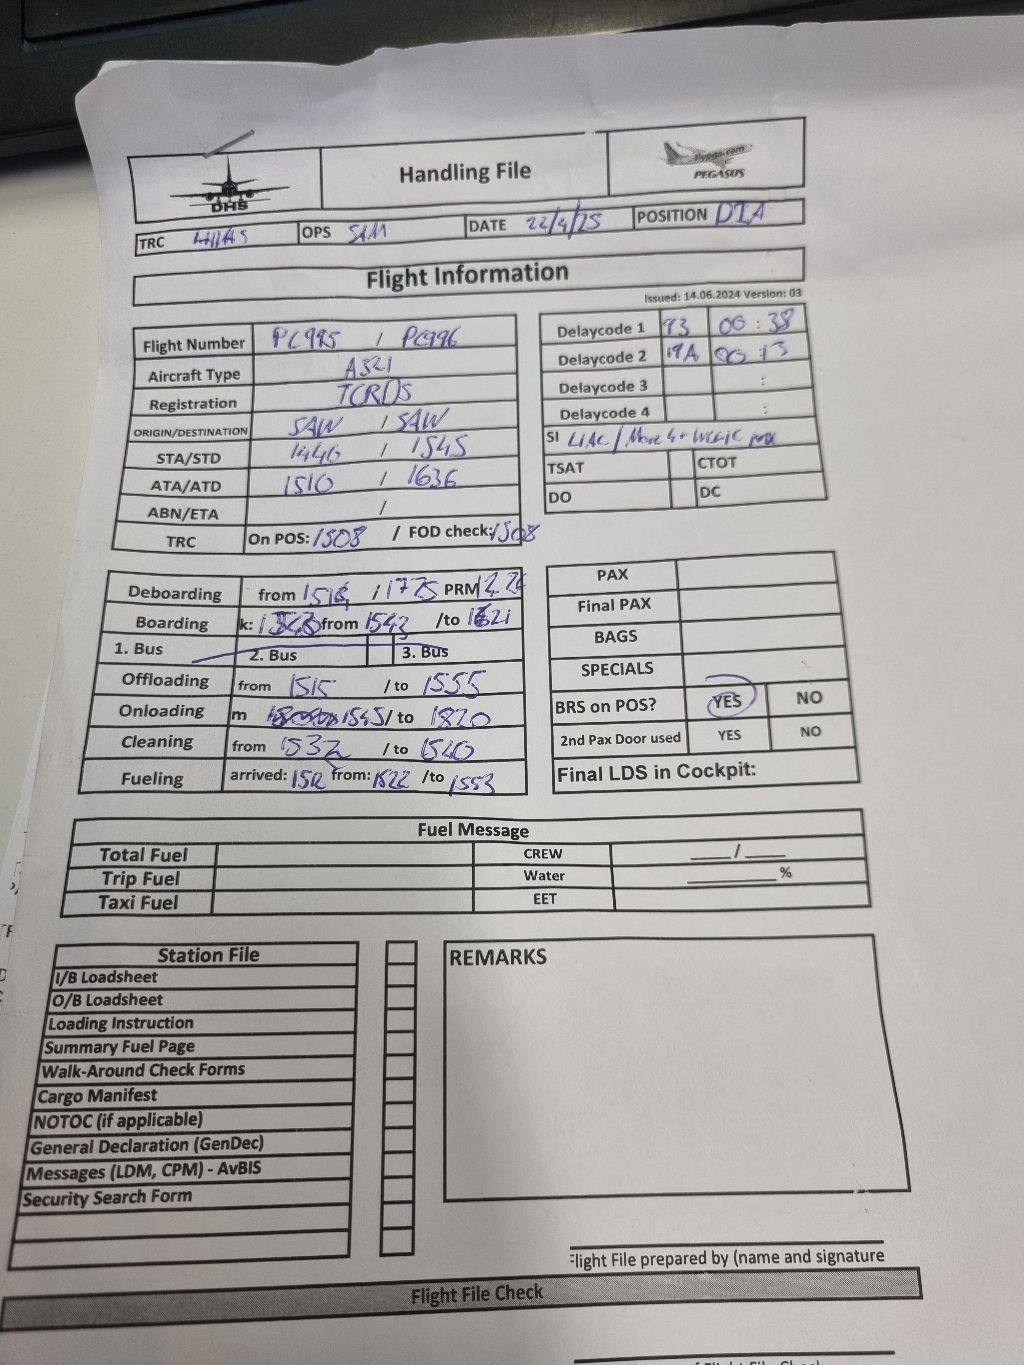 DHS
Handling File
flypgs.com
PEGASUS
TRC
OPS SAM
DATE 22/4/25
POSITION D7A
Flight Information
Issued: 14.06.2024 Version: 03
Flight Number PC995 / PC996
Aircraft Type A321
Registration TCRDS
ORIGIN/DESTINATION SAW / SAW
STA/STD 1440 / 1545
ATA/ATD 1510 / 1636
ABN/ETA /
TRC On POS: 1508 / FOD check: 1508
Delaycode 1 93 00 : 38
Delaycode 2 19A 00 : 13
Delaycode 3 :
Delaycode 4 :
SI LIAC / More 4+ WCHC pax
TSAT CTOT
DO DC
Deboarding from / PRM
Boarding k: from 1543 /to 1621
1. Bus 2. Bus 3. Bus
Offloading from 1515 / to 1555
Onloading m 1545 / to 1820
Cleaning from 1532 / to 1540
Fueling arrived: 1512 from: 1522 /to 1553
PAX
Final PAX
BAGS
SPECIALS
BRS on POS? YES NO
2nd Pax Door used YES NO
Final LDS in Cockpit:
Fuel Message
Total Fuel CREW ____/____
Trip Fuel Water ________%
Taxi Fuel EET
Station File
I/B Loadsheet
O/B Loadsheet
Loading Instruction
Summary Fuel Page
Walk-Around Check Forms
Cargo Manifest
NOTOC (if applicable)
General Declaration (GenDec)
Messages (LDM, CPM) - AvBIS
Security Search Form
REMARKS
Flight File prepared by (name and signature
Flight File Check